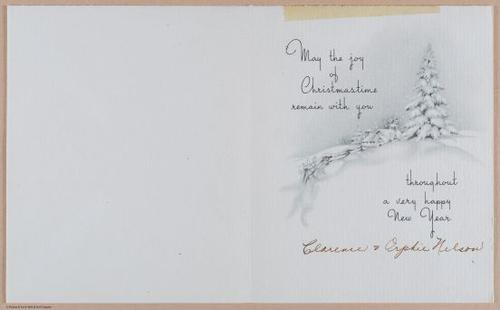 May the joy
of
Christmastime
remain with you
throughout
a very happy
New Year
Clarence & Orphie Nelson